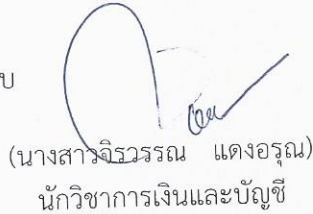 บ
(นางสาวจิรวรรณ แดงอรุณ)
นักวิชาการเงินและบัญชี